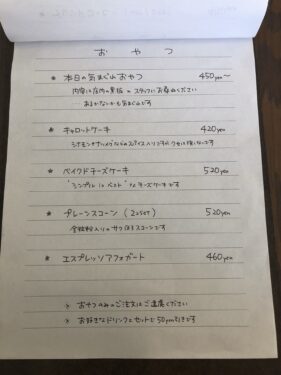 おやつ
* 本日の気まぐれおやつ 450yen〜
内容は店内の黒板 or スタッフにお尋ねください
あるかないかも気まぐれです
* キャロットケーキ 420yen
シナモンやナツメグなどのスパイス入りですがクセは強くないです
* ベイクドチーズケーキ 520yen
"シンプル is ベスト"なチーズケーキです
* プレーンスコーン (2コSET) 520yen
全粒粉入りのサクほろスコーンです
* エスプレッソアフォガート 460yen
* おやつのみのご注文はご遠慮ください
* お好きなドリンクとセットで50yen引きです